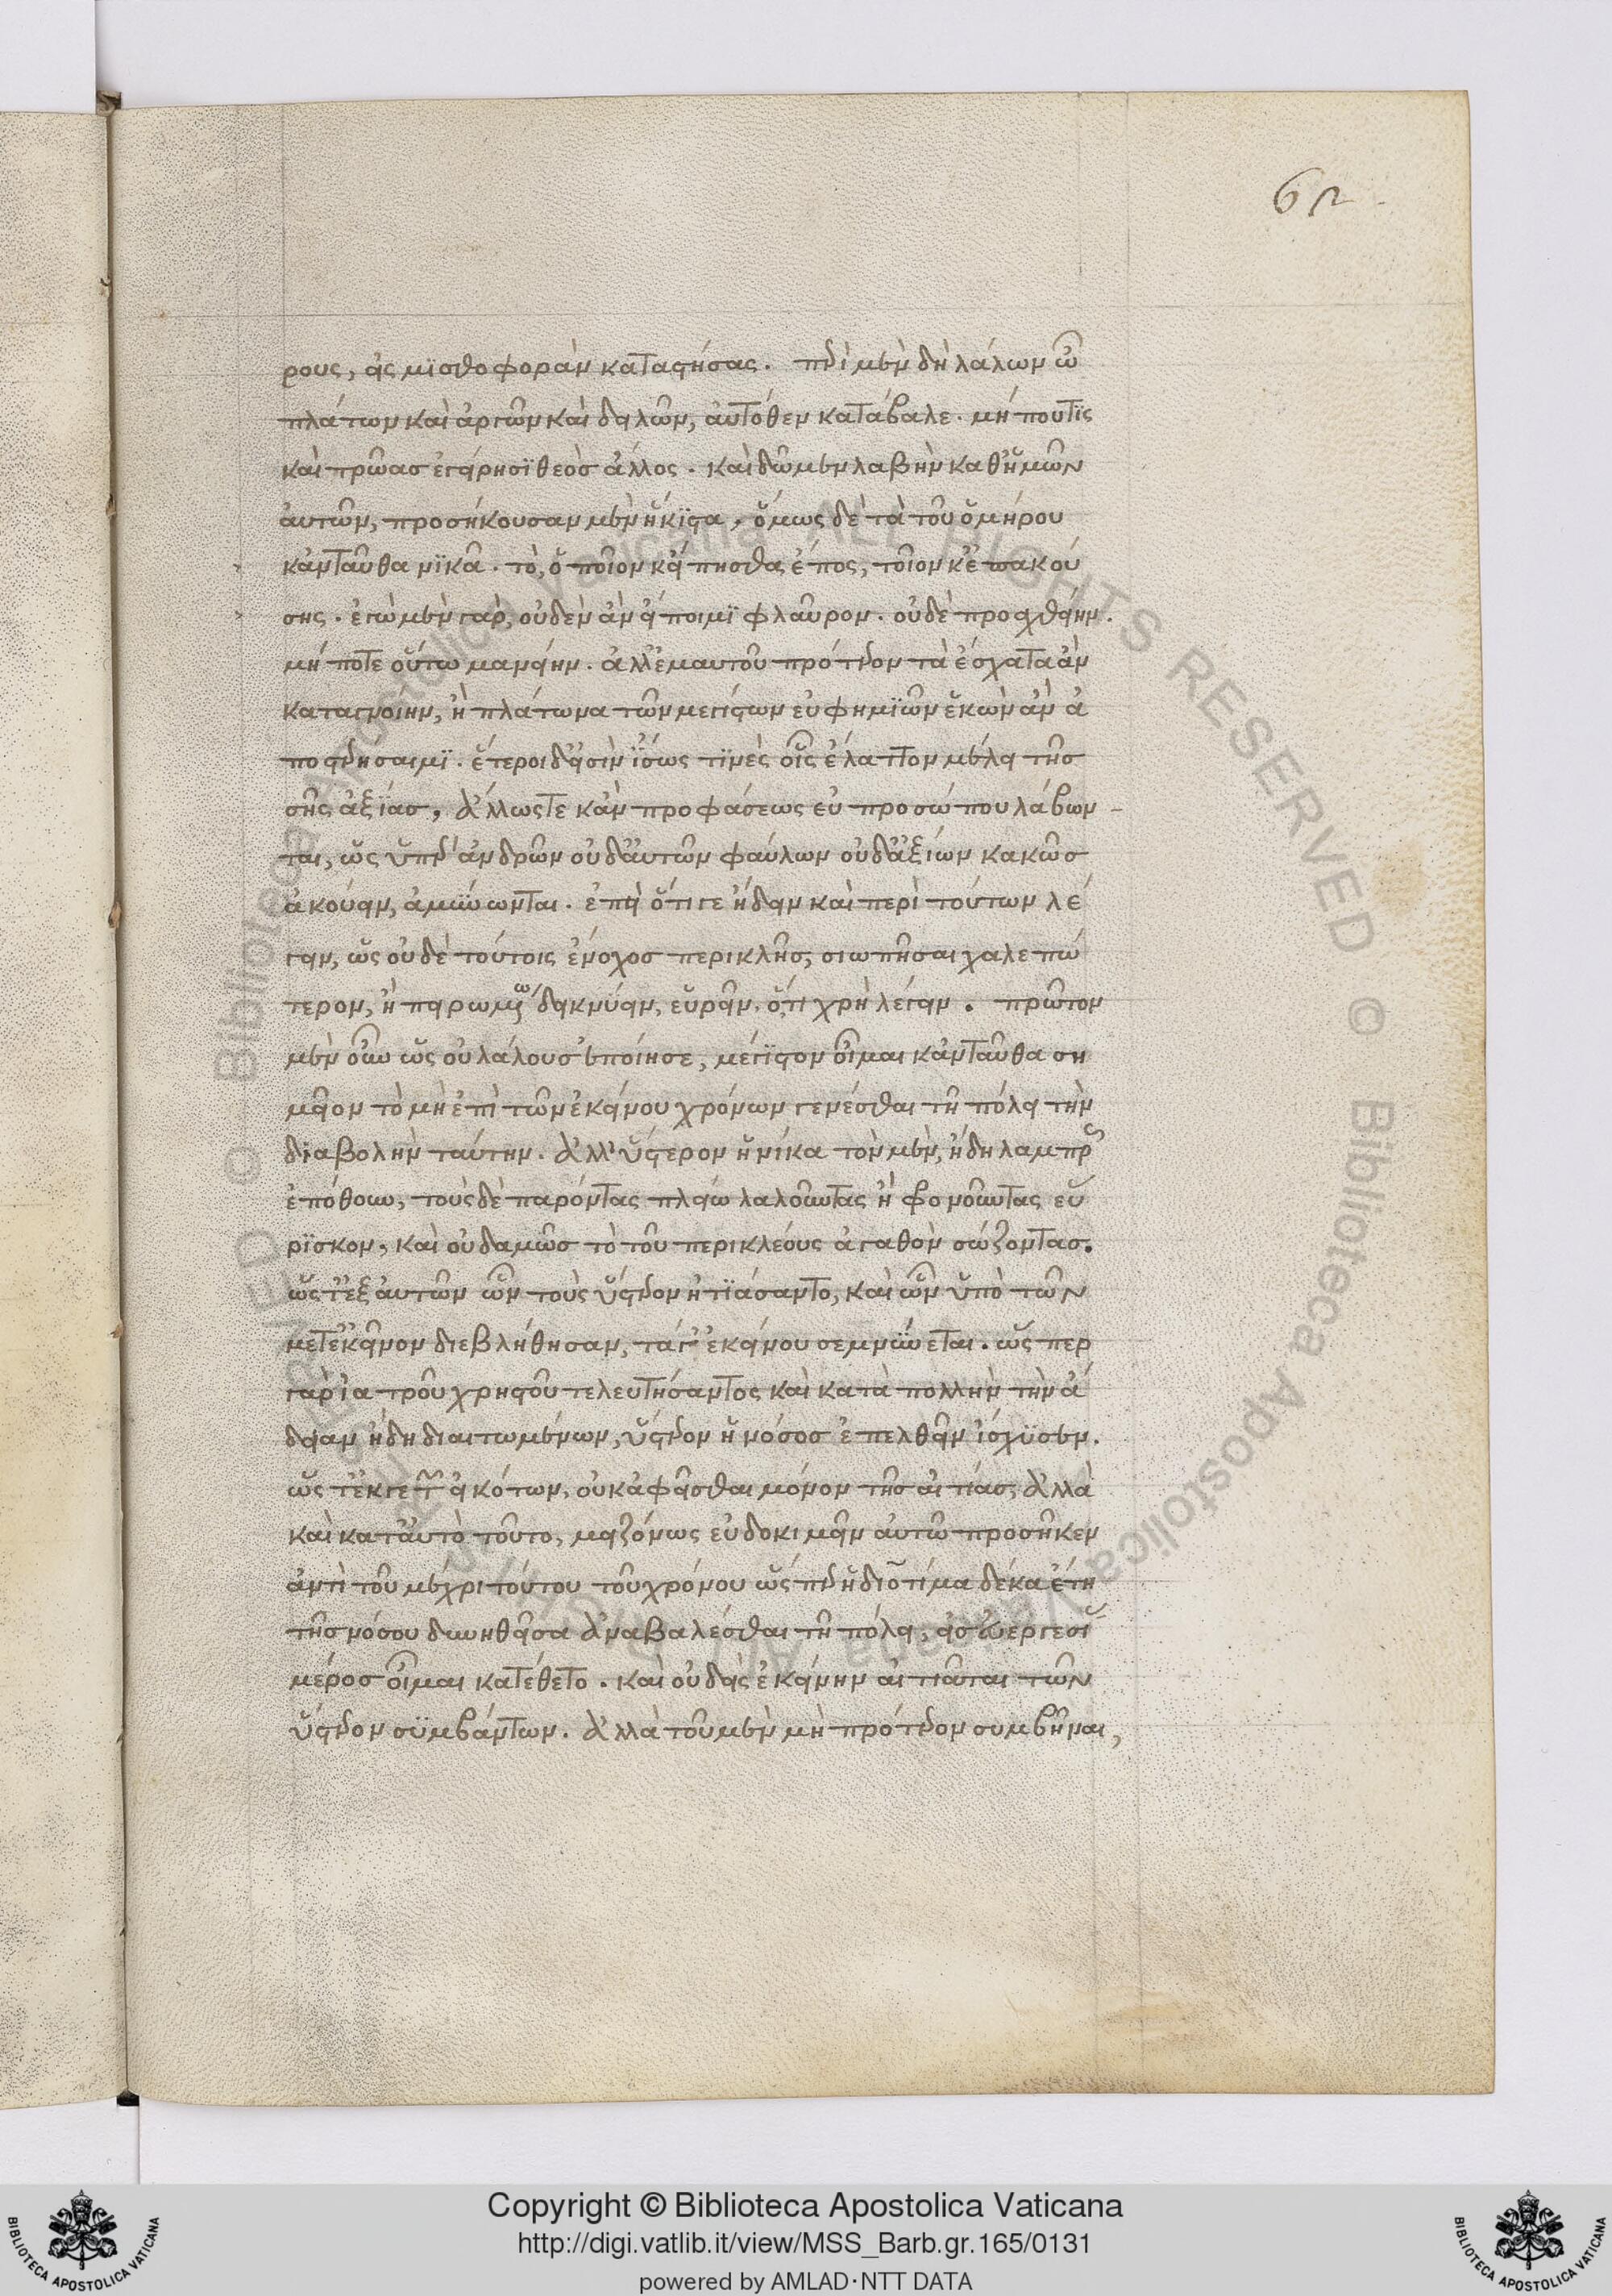 62
ρους, εἰς μισθοφορὰν καταστήσας. περὶ μὲν δὴ λάλων ὦ
πλάτων καὶ ἀργῶν καὶ δειλῶν, αὐτόθεν κατάβαλε. μή που τὶς
καὶ τρῶας ἐγείρησι θεὸς ἄλλος. καὶ δῶμεν λαβὴν καθ' ἡμῶν
αὐτῶν, προσήκουσαν μὲν ἥκιστα, ὅμως δὲ τὰ τοῦ ὁμήρου
κἀνταῦθα νικᾶ. τὸ, ὁποῖον κ' εἴπησθα ἔπος, τοῖον κ' ἐπακού
σης. ἐγὼ μὲν γὰρ, οὐδὲν ἂν εἴποιμι φλαῦρον. οὐδὲ προαχθείην.
μή ποτε οὕτω μανείην. ἀλλ' ἐμαυτοῦ πρότερον τὰ ἔσχατα ἂν
καταγνοίην, ἢ πλάτωνα τῶν μεγίστων εὐφημιῶν ἑκὼν ἂν ἀ
ποστερήσαιμι. ἕτεροι δ' εἰσὶν ἴσως τινὲς οἷς ἔλαττον μέλει τῆς
σῆς ἀξίας, ἄλλως τε κἂν προφάσεως εὐπροσώπου λάβων
ται, ὡς ὑπὲρ ἀνδρῶν οὐδ' αὐτῶν φαύλων οὐδ' ἀξίων κακῶς
ἀκούειν, ἀμύνωνται. ἐπεὶ ὅτι γε ᾔδειν καὶ περὶ τούτων λέ
γειν, ὡς οὐδὲ τούτοις ἔνοχος περικλῆς, σιωπῆσαι χαλεπώ
τερον, ἢ παρὸν δεικνύειν, εὑρεῖν, ὅ,τι χρὴ λέγειν. πρῶτον
μὲν οὖν ὡς οὐ λάλους ἐποίησε, μέγιστον οἶμαι κἀνταῦθα ση
μεῖον τὸ μὴ ἐπὶ τῶν ἐκείνου χρόνων γενέσθαι τῇ πόλει τὴν
διαβολὴν ταύτην. ἀλλ' ὕστερον ἡνίκα τὸν μὲν, ἤδη λαμπρῶς
ἐπόθουν, τοὺς δὲ παρόντας πλείω λαλοῦντας ἢ φρονοῦντας εὕ
ρισκον, καὶ οὐδαμῶς τὸ τοῦ περικλέους ἀγαθὸν σώζοντας.
ὥστ' ἐξ αὐτῶν ὧν τοὺς ὕστερον ᾐτιάσαντο, καὶ ὧν ὑπὸ τῶν
μετ' ἐκεῖνον διεβλήθησαν, τά γ' ἐκείνου σεμνύνεται. ὥσπερ
γὰρ ἰατροῦ χρηστοῦ τελευτήσαντος καὶ κατὰ πολλὴν τὴν ἄ
δειαν ἤδη διαιτωμένων, ὕστερον ἡ νόσος ἐπελθεῖν ἴσχυσεν.
ὥστ' ἔκ γε τῶν εἰκότων, οὐκ ἀφεῖσθαι μόνον τῆς αἰτίας, ἀλλὰ
καὶ κατ' αὐτὸ τοῦτο, μειζόνως εὐδοκιμεῖν αὐτῷ προσῆκεν
ἀντὶ τοῦ μέχρι τούτου τοῦ χρόνου ὥσπερ ἡ διοτίμα δέκα ἔτη
τῆς νόσου δυνηθεῖσα ἀναβαλέσθαι τῇ πόλει, εἰς εὐεργεσίας
μέρος οἶμαι κατέθετο. καὶ οὐδεὶς ἐκείνην αἰτιᾶται τῶν
ὕστερον συμβάντων. ἀλλὰ τοῦ μὲν μὴ πρότερον συμβῆναι,
© Biblioteca Apostolica Vaticana ALL RIGHTS RESERVED
Copyright © Biblioteca Apostolica Vaticana
http://digi.vatlib.it/view/MSS_Barb.gr.165/0131
powered by AMLAD·NTT DATA
BIBLIOTECA APOSTOLICA VATICANA
BIBLIOTECA APOSTOLICA VATICANA